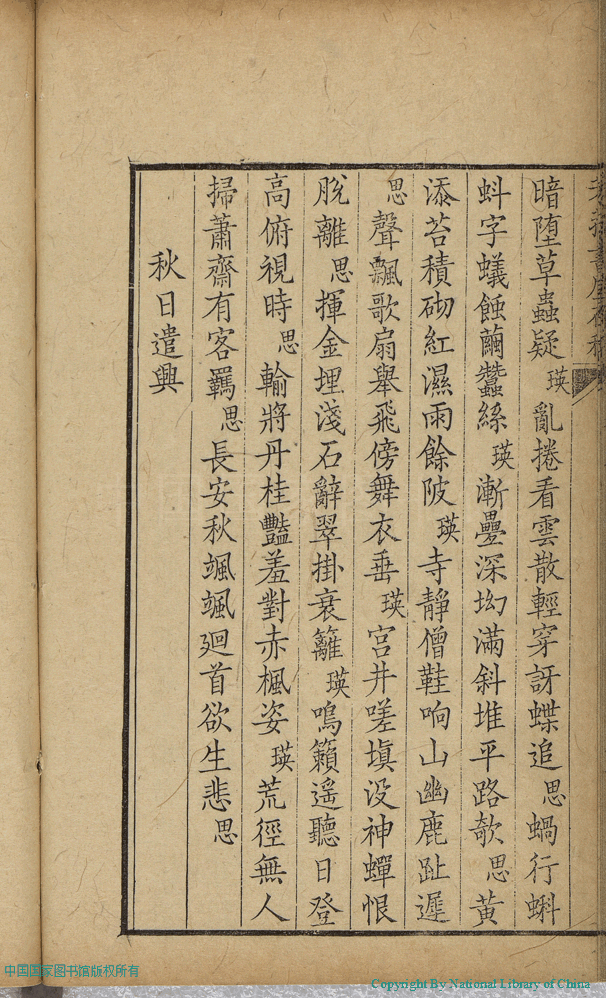 暗堕草蟲疑瑛亂捲看雲散輕穿訝蝶追思蝸行蝌
蚪字蟻蝕繭蠶絲瑛漸疊深坳滿斜堆平路欹思黄
添苔積砌紅濕雨餘陂瑛寺靜僧鞋响山幽鹿趾遲
思聲飄歌扇舉飛傍舞衣垂瑛宫井嗟塡没神蟬恨
脫離思揮金埋淺石辭翠掛衰籬瑛鳴籟遥聽日登
高俯視時思輸將丹桂豔羞對赤楓姿瑛荒徑無人
掃蕭齋有客羈思長安秋颯颯廻首欲生悲思
秋日遣興
中国国家图书馆版权所有
Copyright By National Library of China